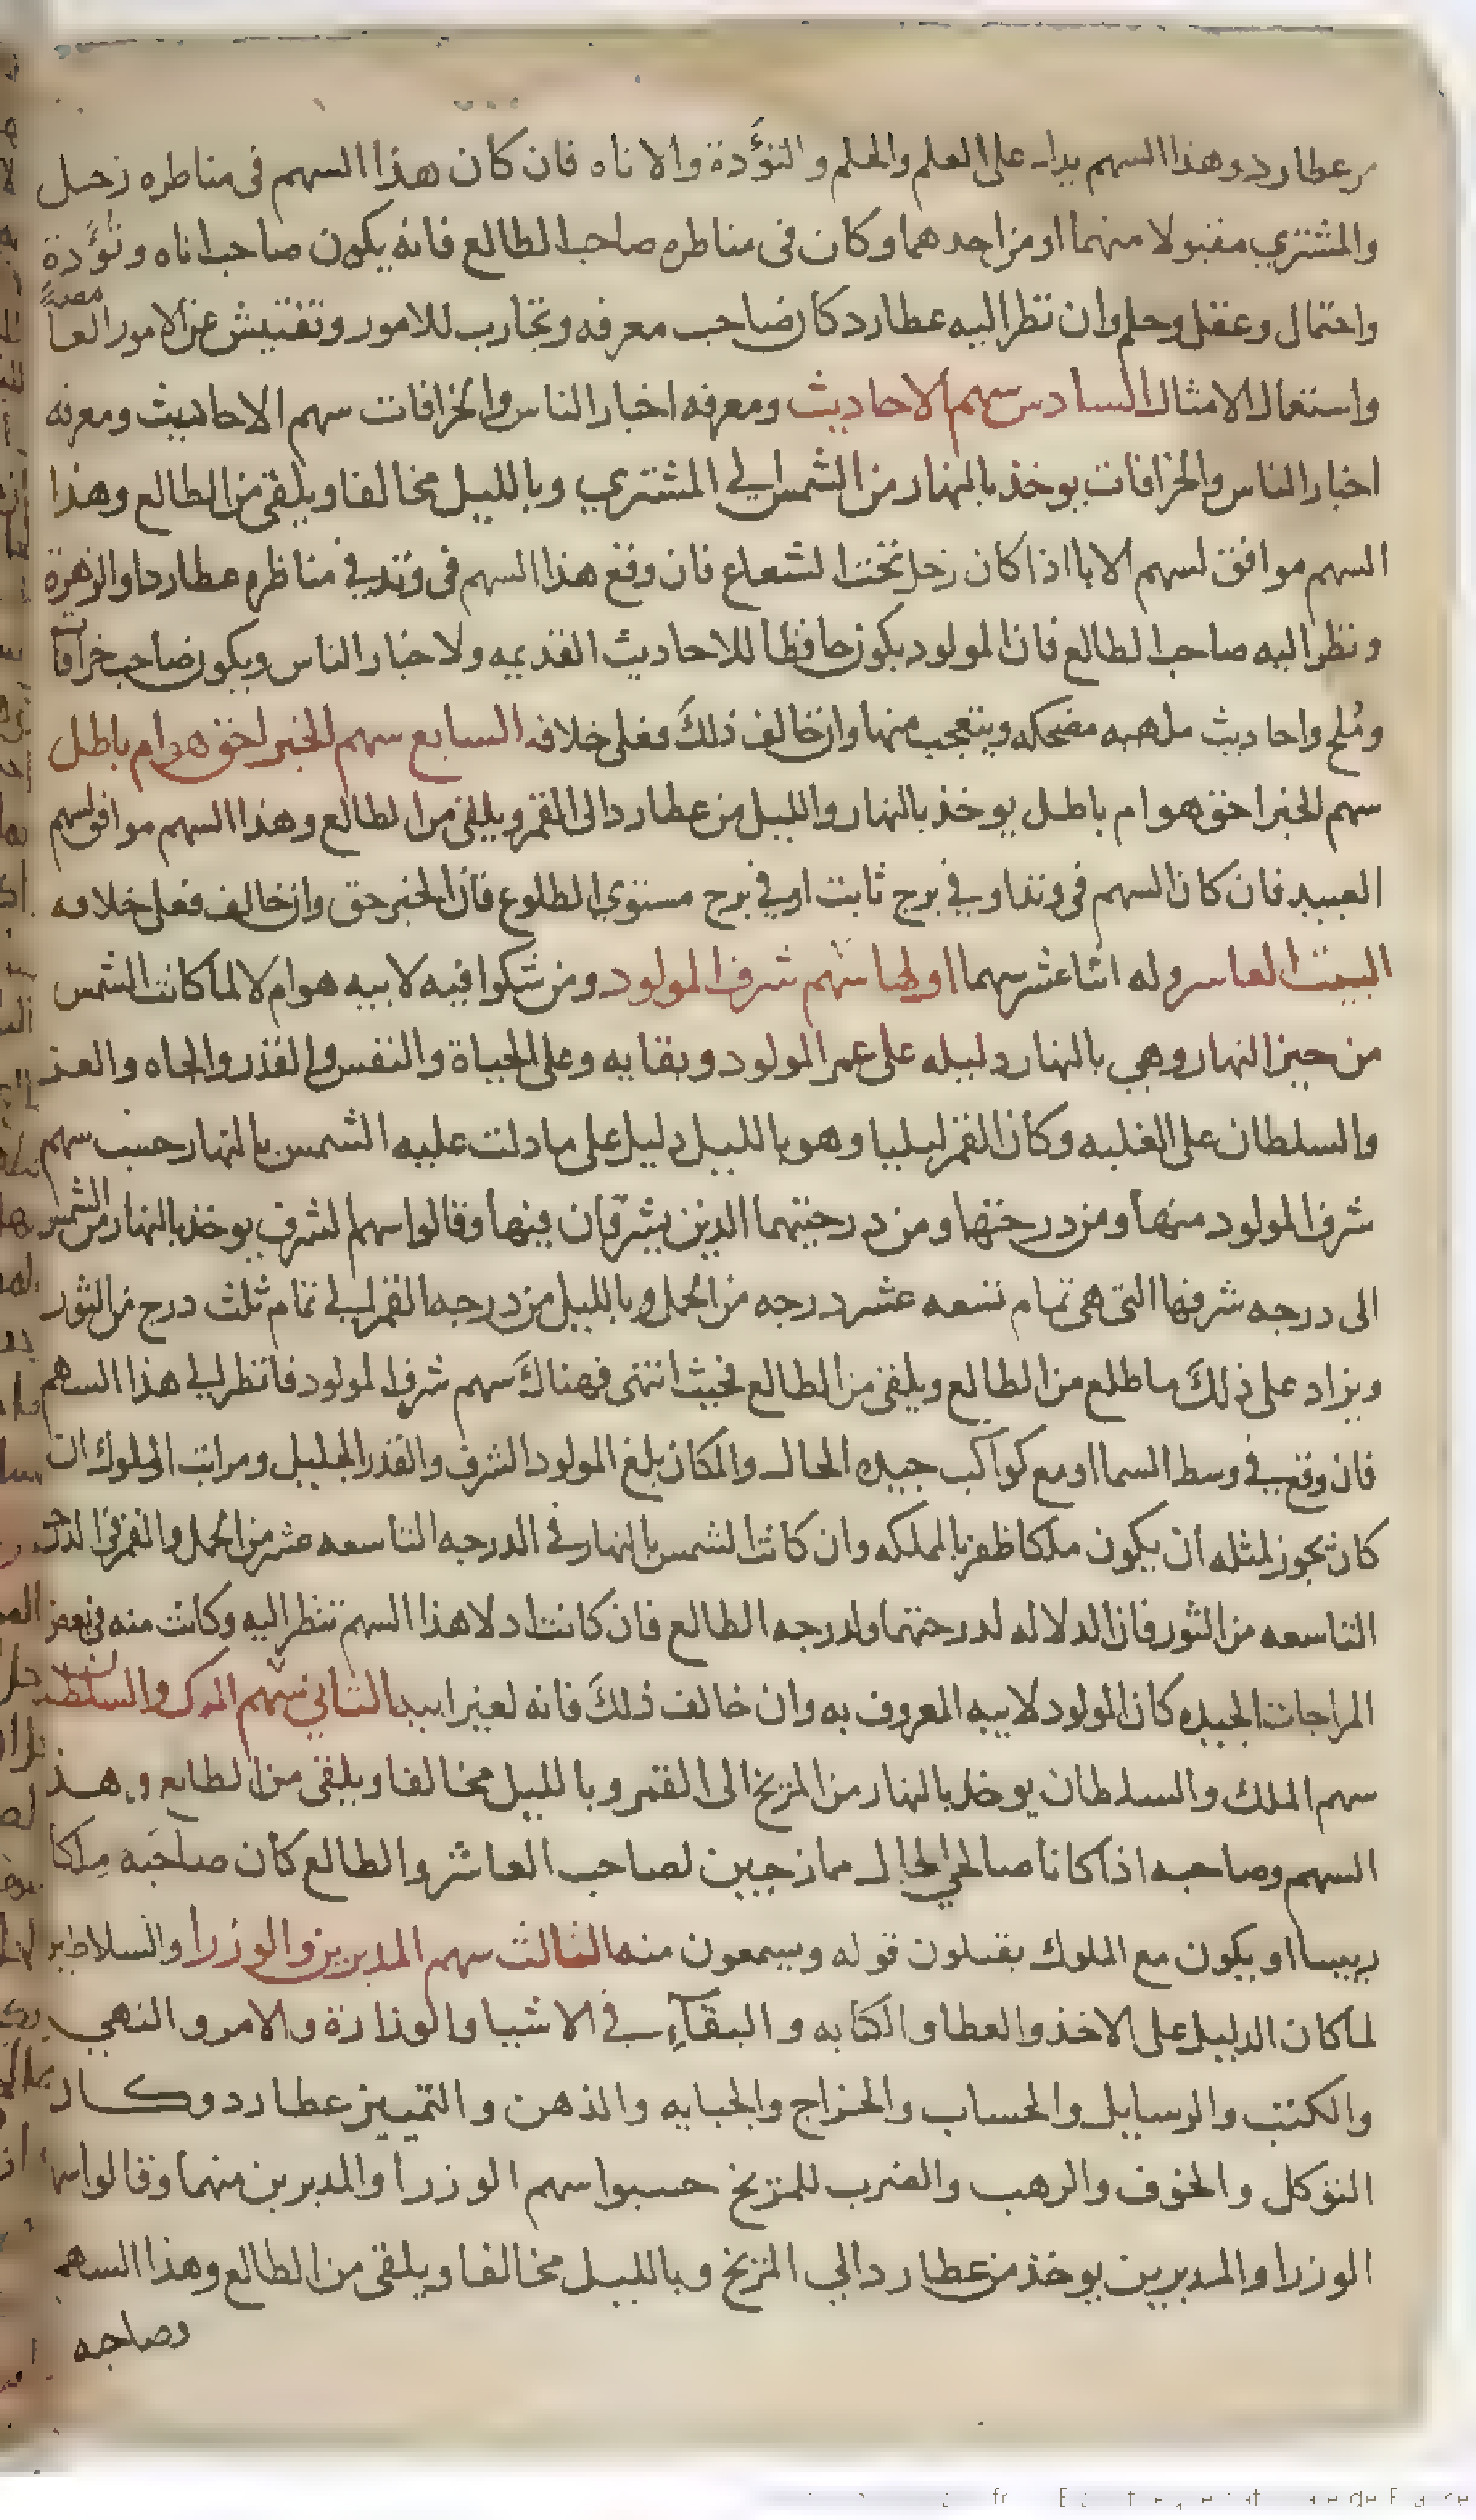 من عطارد وهذا السهم يدل على العلم والحلم والتؤَدة والاناه فان كان هذا السهم فى مناطره زحل
والمشتري مقبولا منهما او من احدهما وكان فى مناطره صاحب الطالع فانه يكون صاحب اناه وتؤَدة
واحتمال وعقل وحلم وان نظر اليه عطارد كان صاحب معرفه وتجارب للامور وتفتيش عن الامور
واستعمال الامثال السادس سهم الاحاديث ومعرفه اخبار الناس والخرافات سهم الاحاديث ومعرفه
اخبار الناس والخرافات يوخذ بالنهار من الشمس الي المشتري وبالليل مخالفا ويلقى من الطالع وهذا
السهم موافق لسهم الابا اذا كان زحل تحت الشعاع فان وقع هذا السهم فى وتد في مناظره عطارد او الزهرة
ونظر اليه صاحب الطالع فان المولود يكون حافظا للاحاديث القديمه ولاخبار الناس ويكون صاحب خرافات
ومُلح واحاديث ملهيه مضحكه ويتعجب منها وان خالف ذلكَ فعلى خلافه السابع سهم الخبر احق هو ام باطل
سهم الخبر احق هو ام باطل يوخذ بالنهار والليل من عطارد الى القمر ويلقى من الطالع وهذا السهم موافق لسهم
العبيد فان كان السهم فى وتد او في برج ثابت او في برج مستوي الطلوع فان الخبر حق وان خالف فعلى خلافه
البيت العاسر وله اثنا عشر سهما اولها سهم شرف المولود ومن شكوا فيه لابيه هو ام لا لما كانت الشمس
من حيز النهار وهي بالنهار دليله على عمر المولود وبقايه وعلى الحياة والنفس والقدر والجاه والعز
والسلطان على الغلبه وكان القمر ليليا وهو بالليل دليل على ما دلت عليه الشمس بالنهار حسب سهم
شرف المولود منهما ومن درجتها ومن درجتيهما الذين يشرّفان فيها وقالوا سهم الشرف يوخذ بالنهار من الشمس
الى درجه شرفها التى هى تمام تسعه عشر درجه من الحمل وبالليل من درجه القمر الي تمام ثلث درج من الثور
ويزاد على ذلكَ ما طلع من الطالع ويلقى من الطالع فحيث انتهى فهناكَ سهم شرف المولود فانظر الي هذا السهم
فان وقع في وسط السما او مع كواكب جيده الحال والمكان بلغ المولود الشرف والقدر الجليل ومراتب الملوك ان
كان يجوز لمثله ان يكون ملكا ظفر بالمملكه وان كانت الشمس بالنهار في الدرجه التاسعه عشر من الحمل والقمر فى الدرجه
التاسعه من الثور فان الدلاله لدرجتهما ولدرجه الطالع فان كانت ادلا هذا السهم تنظر اليه وكانت منه فى بعض
المزاجات الجيده كان المولود لابيه المعروف به وان خالف ذلكَ فانه لغير ابيه الثاني سهم الملك والسلطان
سهم الملك والسلطان يوخذ بالنهار من المريخ الى القمر وبالليل مخالفا ويلقى من الطالع وهذا
السهم وصاحبه اذا كانا صالحي الحال ممازجين لصاحب العاشر والطالع كان صاحبه ملكا
رييسا او يكون مع الملوك يقبلون قوله ويسمعون منه الثالث سهم المدبرين والوزرا والسلاطين
لما كان الدليل على الاخذ والعطا والكتابه والبقآء في الاشيا والوزارة والامر والنهي
والكتب والرسايل والحساب والخراج والجبايه والذهن والتمييز عطارد وكان
التوكل والخوف والرهب والضرب للمريخ حسبوا سهم الوزرا والمدبرين منهما وقالوا سهم
الوزرا والمدبرين يوخذ من عطارد الي المريخ وبالليل مخالفا ويلقى من الطالع وهذا السهم
وصاحبه